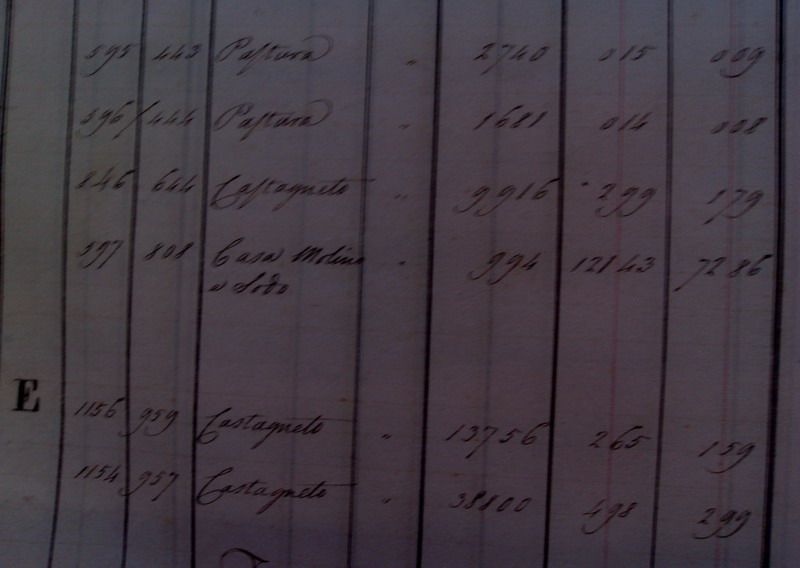 595 443 Pastura " 2740 015 009
596 / 444 Pastura " 1681 014 008
846 644 Castagneto " 9916 299 179
597 808 Casa Molino " 994 12143 7286
e Sodo
E 1156 959 Castagneto " 13756 265 159
1154 957 Castagneto " 38800 498 299